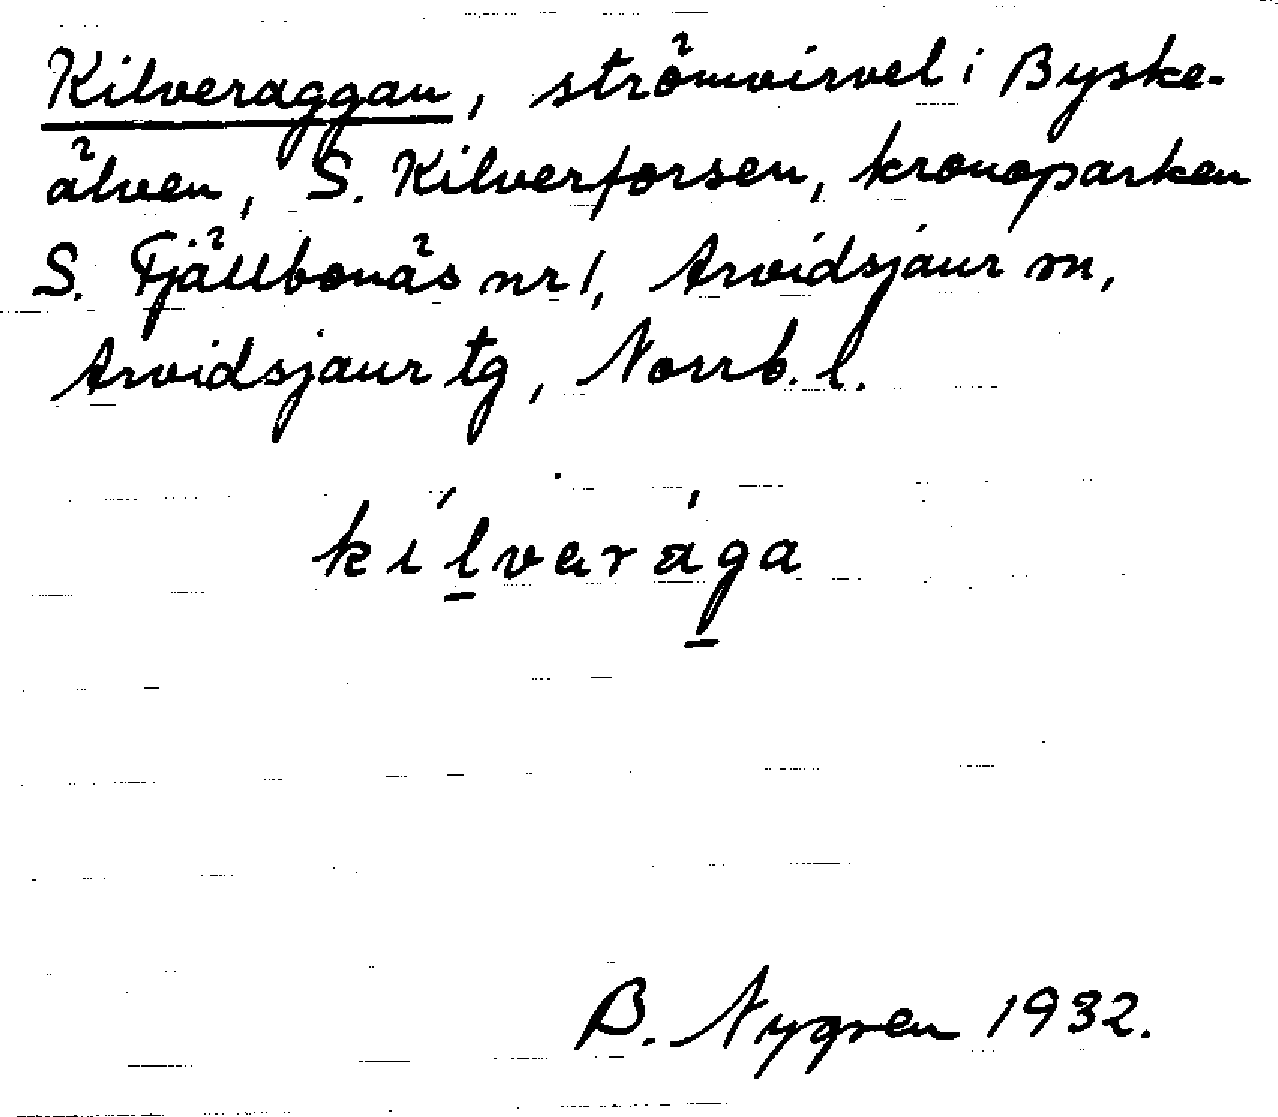 Kilveraggan, strömvirvel i Byske-
älven, S. Kilverforsen, kronoparken
S. Fjällbonäs nr 1, Arvidsjaur sn,
Arvidsjaur tg, Norrb. l.
kilvaràga
B. Nygren 1932.